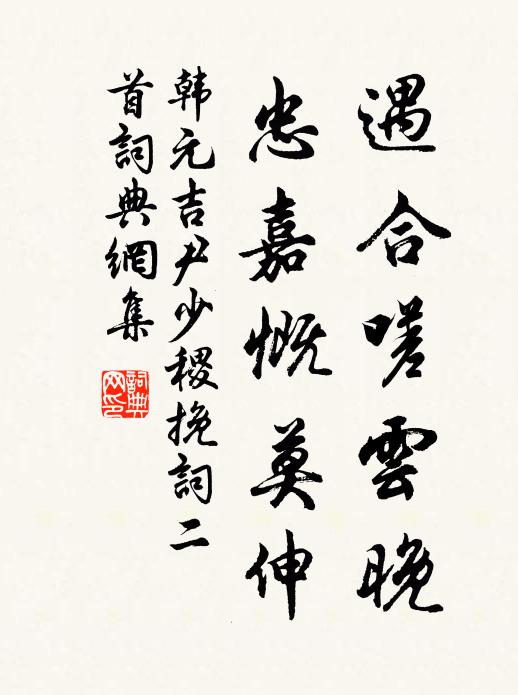 遇合嗟雲晚
忠嘉慨莫伸
韩元吉尹少稷挽詞二
首詞典網集
詞典
网印